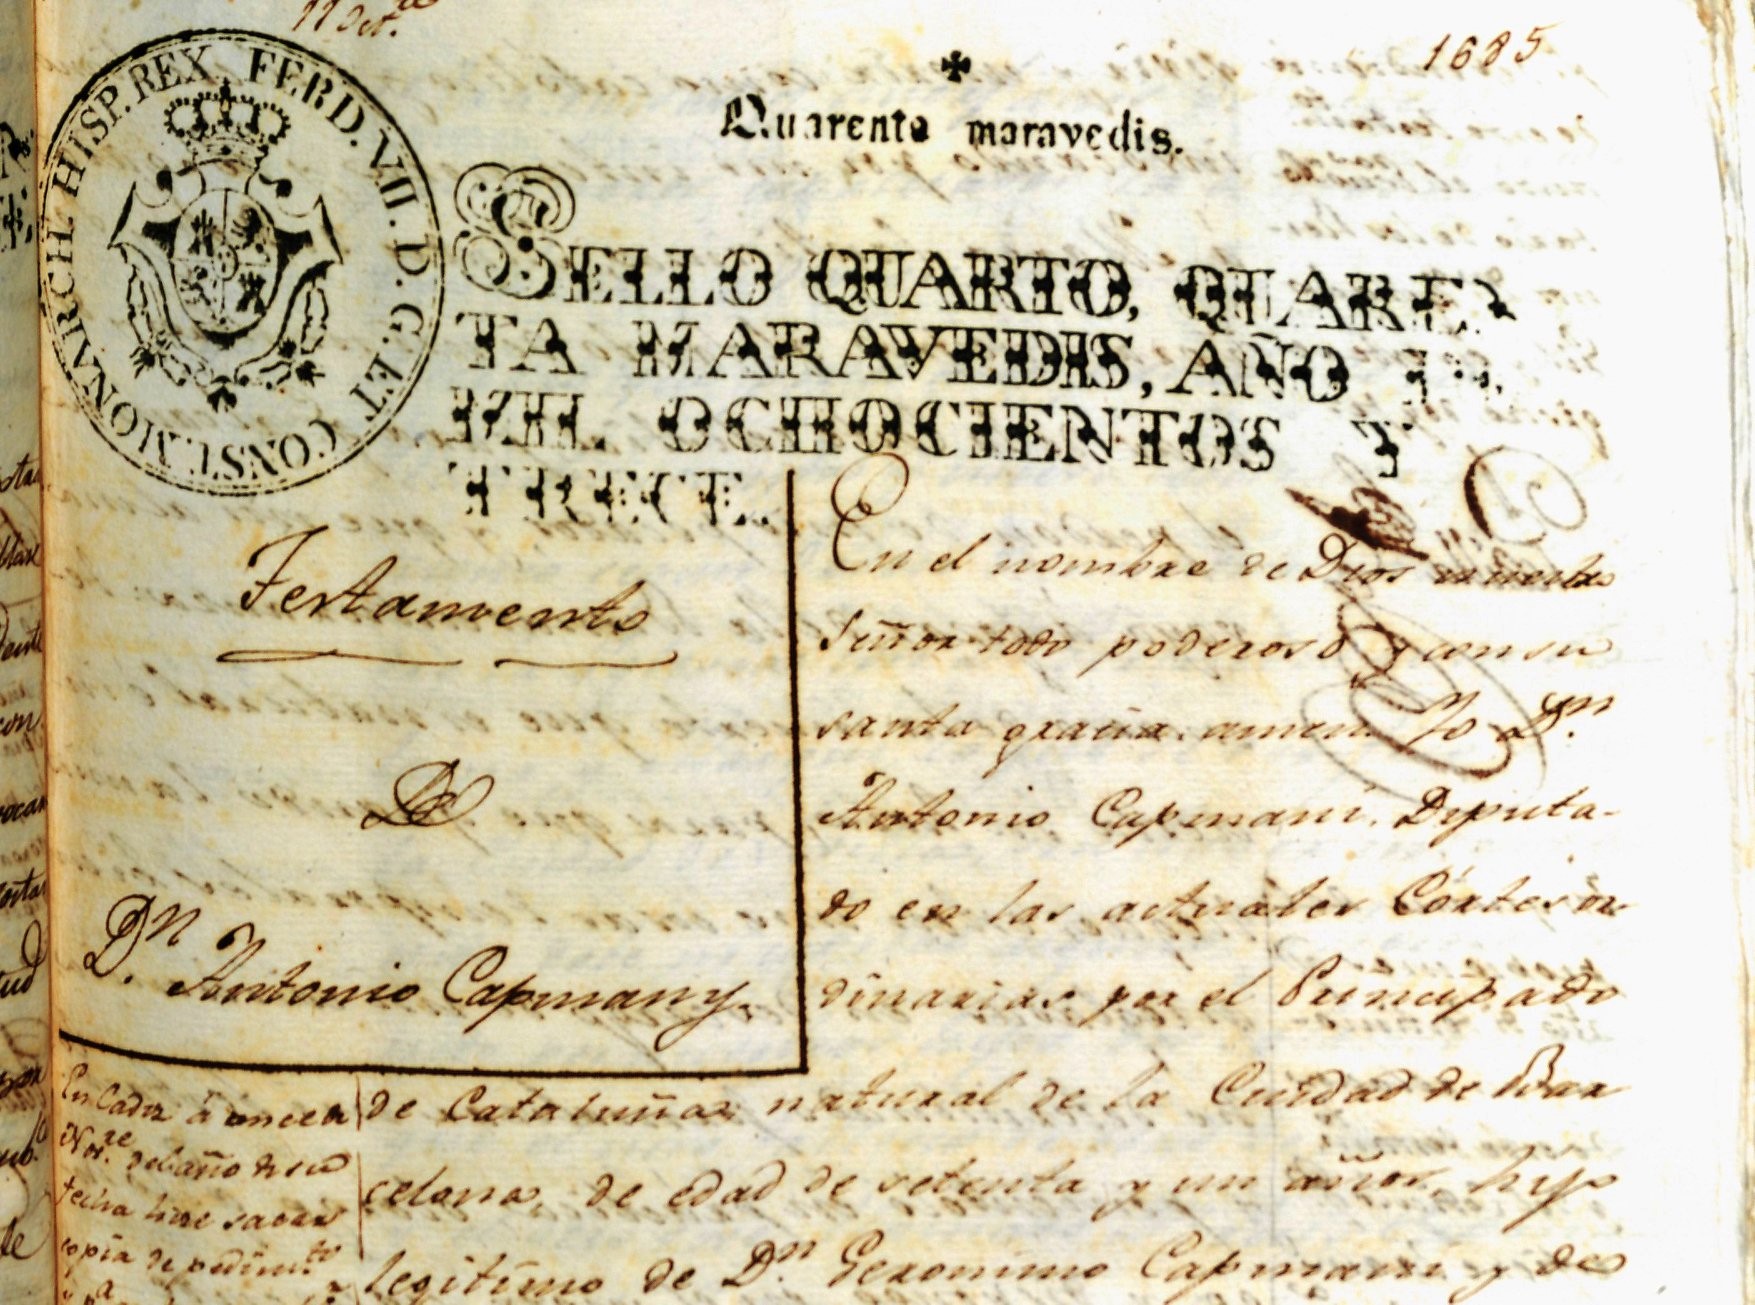 11 Oct.re
1685
HISP. REX FERD. VII. D. G. ET CONST. MONARCH.
Quarenta maravedis.
SELLO QUARTO, QUAREN
TA MARAVEDIS, AÑO DE
MIL OCHOCIENTOS Y
TRECE.
Testamento
De
Dn.
Antonio Capmany.
En el nombre de Dios nuestro
Señor todo poderoso y con su
santa gracia amen. Yo Dn.
Antonio Capmani, Diputa-
do en las actuales Córtes or
dinarias por el Principado
de Cataluña, natural de la Ciudad de Bar
celona, de edad de setenta y un años, hijo
legitimo de Dn. Geronimo Capmani y de
En Cadiz á once de
Nov.re del año de su
fecha hice sacar
copia de pedim.to